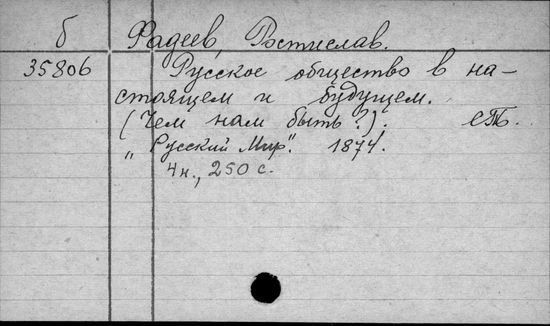 б Фадеев, Ростислав.
35806 Русское общество в на-
стоящем и будущем.
(Чем нам быть?). СПб.
„Русский Мир". 1874.
4н., 250 с.